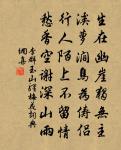 生在幽崖獨無主
溪蘿澗鳥為儔侶
行人陌上不留情
愁香空謝深山雨
李群玉山驛梅花詞典
網集